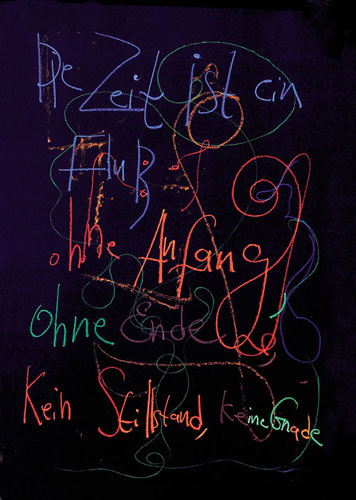 Die Zeit ist ein
Fluß
ohne Anfang
ohne Ende
Kein Stillstand, keine Gnade